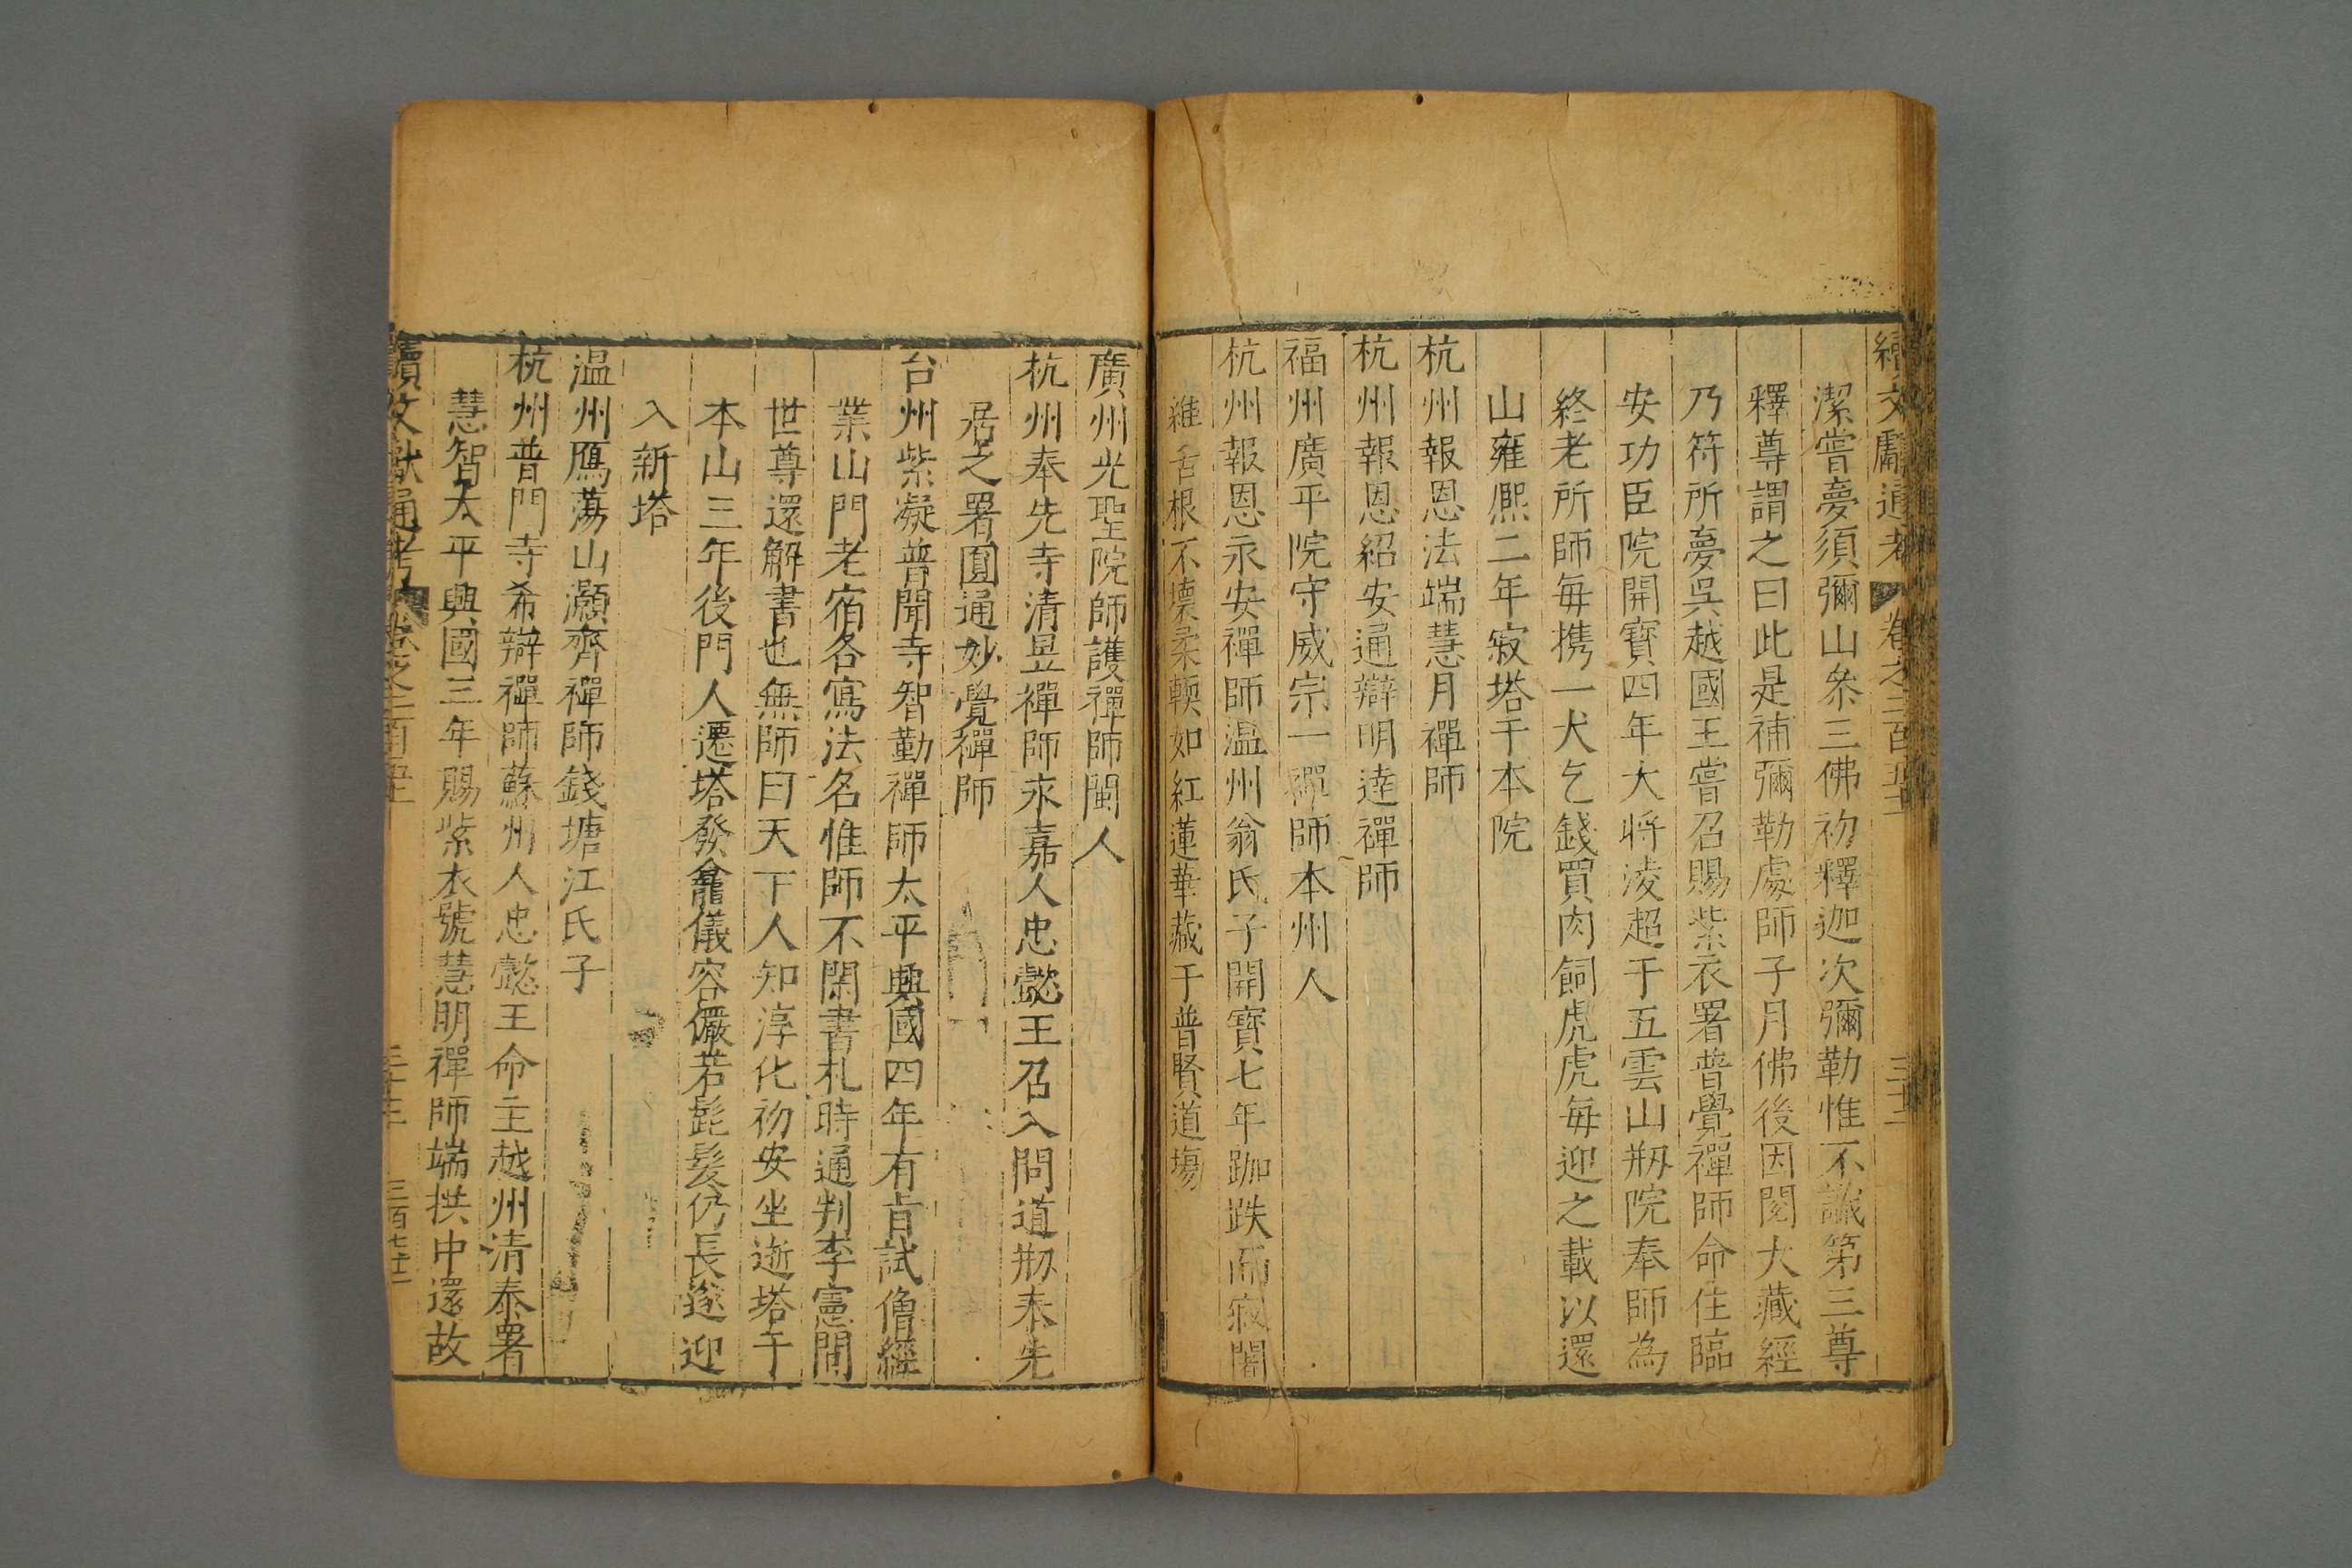 續文獻通考 卷之二百五十 三十二
潔嘗夢須彌山叅三佛初釋迦次彌勒惟不識第三尊
釋尊謂之曰此是補彌勒處師子月佛後因閱大藏經
乃符所夢吳越國王嘗召賜紫衣署普覺禪師命住臨
安功臣院開寶四年大將淩超于五雲山剏院奉師為
終老所師每携一犬乞錢買肉飼虎虎每迎之載以還
山雍熈二年寂塔于本院
杭州報恩法端慧月禪師
杭州報恩紹安通辯明達禪師
福州廣平院守威宗一禪師本州人
杭州報恩永安禪師温州翁氏子開寶七年跏趺而寂闍
維舌根不壞柔輭如紅蓮華藏于普賢道塲
廣州光聖院師護禪師閩人
杭州奉先寺清昱禪師永嘉人忠懿王召入問道剏奉先
居之署圓通妙覺禪師
台州紫凝普聞寺智勤禪師太平興國四年有旨試僧經
業山門老宿各寫法名惟師不閑書札時通判李憲問
世尊還解書也無師曰天下人知淳化初安坐逝塔于
本山三年後門人遷塔發龕儀容儼若髭髮仍長遂迎
入新塔
温州鴈蕩山灝齊禪師錢塘江氏子
杭州普門寺希辯禪師蘇州人忠懿王命主越州清泰署
慧智太平興國三年賜紫衣號慧明禪師端拱中還故
續文獻通考 卷之二百五十